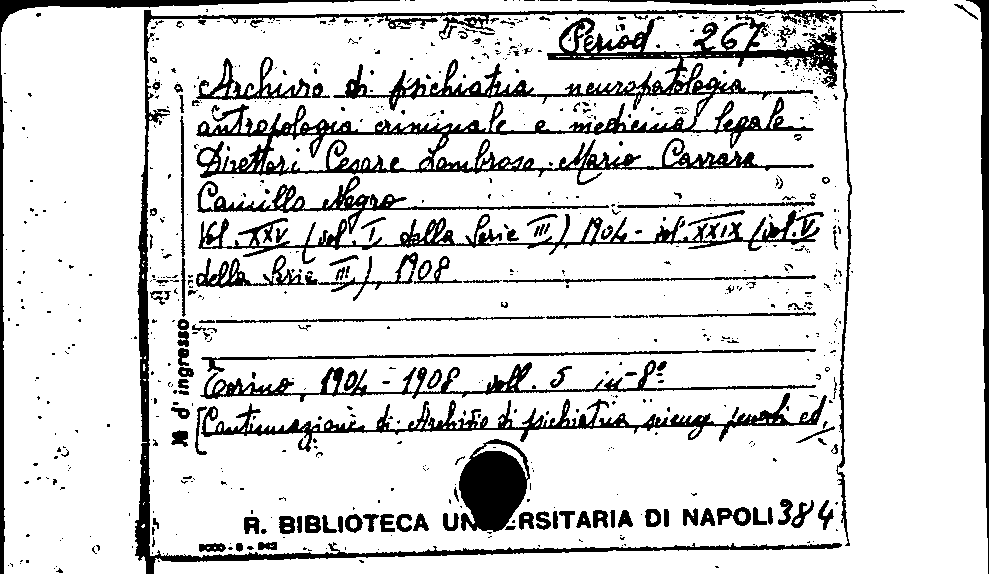 Period. 267
Archivio di psichiatria, neuropatologia,
antropologia criminale e medicina legale.
Direttori Cesare Lombroso, Mario Carrara,
Camillo Negro
Vol. XXV (vol. I della Serie III) 1904 - vol. XXIX (vol. V
della Serie III), 1908
Torino, 1904 - 1908, voll. 5 in-8º
[Continuazione di: Archivio di psichiatria, scienze penali ed,
№ d' ingresso
R. BIBLIOTECA UNIVERSITARIA DI NAPOLI 384